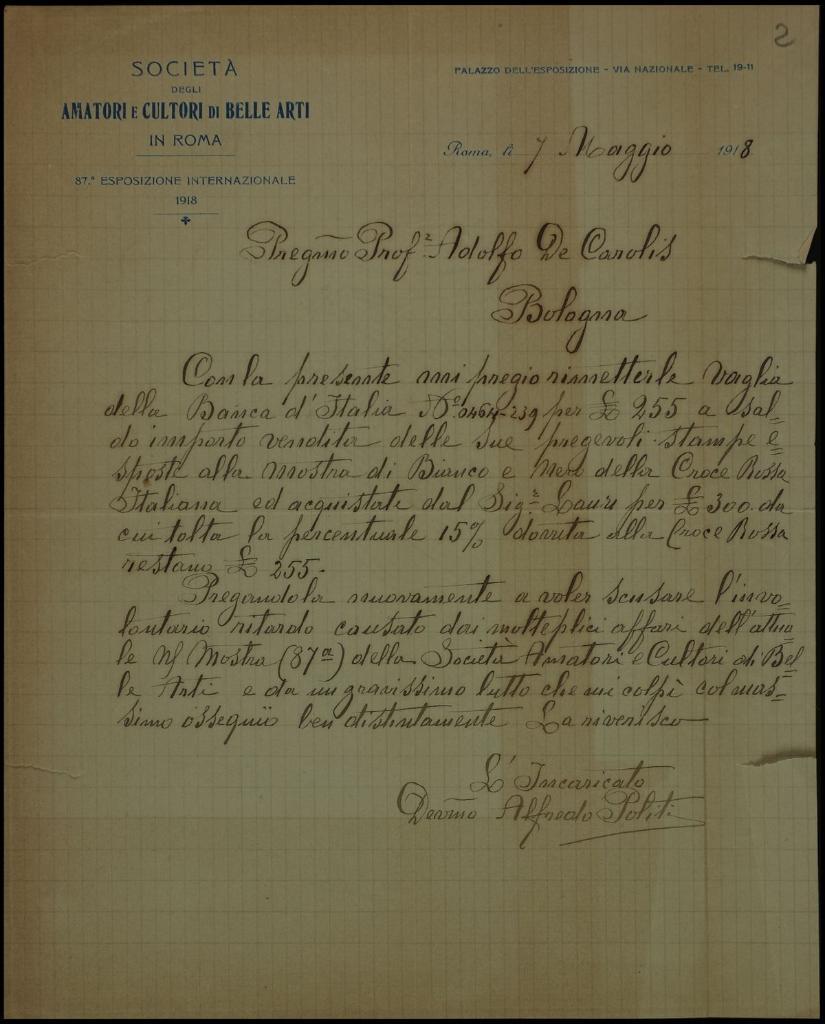 2
SOCIETÀ
DEGLI
AMATORI E CULTORI DI BELLE ARTI
IN ROMA
87.ª ESPOSIZIONE INTERNAZIONALE
1918
PALAZZO DELL'ESPOSIZIONE - VIA NAZIONALE - TEL. 19-11
Roma, li 7 Maggio 1918
Pregmo Prof.r Adolfo De Carolis
Bologna
Con la presente mi pregio rimetterle Vaglia
della Banca d'Italia No. 0464-239 per £ 255 a sal=
do importo vendita delle sue pregevoli stampe e=
sposte alla mostra di Bianco e Nero della Croce Rossa
Italiana ed acquistate dal Sig.r Lauri per £ 300. da
cui tolta la percentuale 15% dovuta alla Croce Rossa
restano £ 255.
Pregandola nuovamente a voler scusare l'invo=
lontario ritardo causato dai molteplici affari dell'attua=
le Mostra (87a) della Società Amatori e Cultori di Bel=
le Arti e da un gravissimo lutto che mi colpì col mas=
simo ossequio ben distintamente La riverisco
L'Incaricato
Devmo Alfredo Politi